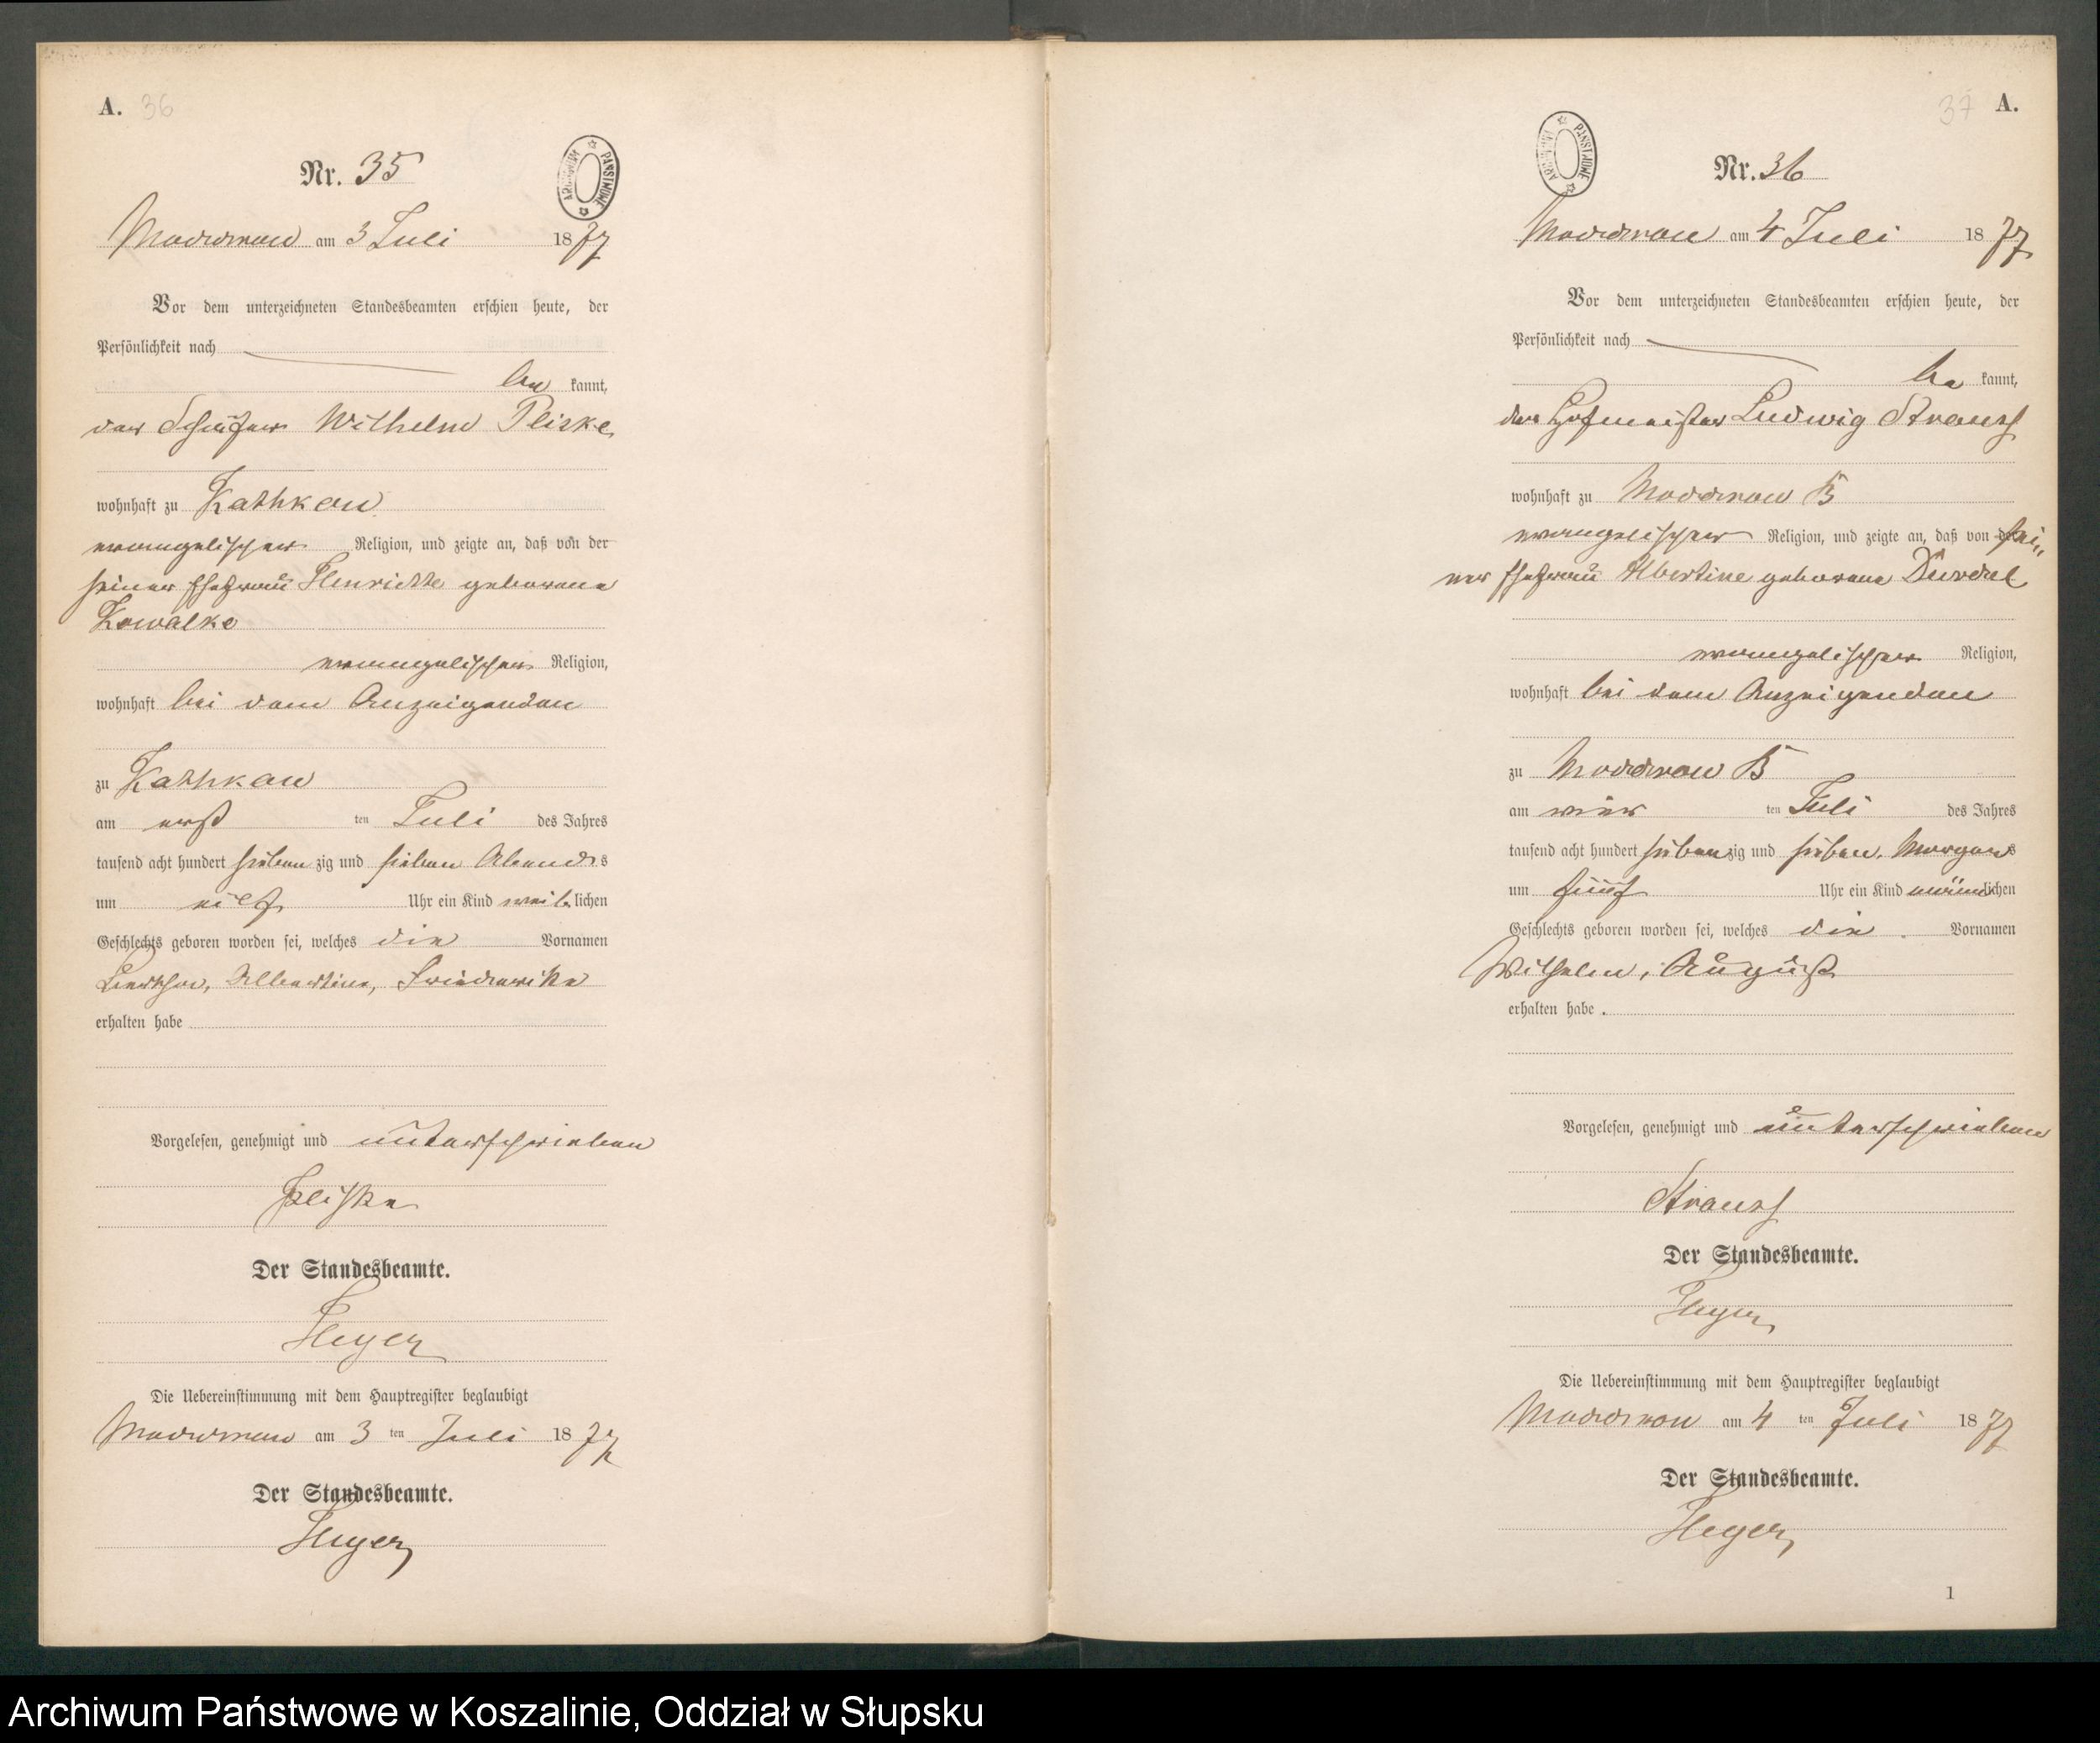 A. 36
Nr. 35
ARCHIWUM PAŃSTWOWE
Moddrow am 3 Juli 1877
Vor dem unterzeichneten Standesbeamten erschien heute, der
Persönlichkeit nach
be kannt,
der Schäfer Wilhelm Pliske
wohnhaft zu Kathkow
evangelischer Religion, und zeigte an, daß von der
seiner Ehefrau Henriette geborene
Kowalke
evangelischer Religion,
wohnhaft bei dem Anzeigenden
zu Kathkow
am erst ten Juli des Jahres
tausend acht hundert sieben zig und sieben Abends
um elf Uhr ein Kind weiblichen
Geschlechts geboren worden sei, welches die Vornamen
Albertine, Friederike
erhalten habe
Vorgelesen, genehmigt und unterschrieben
Pliske
Der Standesbeamte.
Heyer
Die Uebereinstimmung mit dem Hauptregister beglaubigt
Moddrow am 3 ten Juli 1877
Der Standesbeamte.
Heyer
37 A.
ARCHIWUM PAŃSTWOWE
Nr. 36
Moddrow am 4 Juli 1877
Vor dem unterzeichneten Standesbeamten erschien heute, der
Persönlichkeit nach
be kannt,
der Hofmeister Ludwig Strauss
wohnhaft zu Moddrow B
evangelischer Religion, und zeigte an, daß von der sei„
ner Ehefrau Albertine geborene
evangelischer Religion,
wohnhaft bei dem Anzeigenden
zu Moddrow B
am vier ten Juli des Jahres
tausend acht hundert siebenzig und sieben, Morgens
um fünf Uhr ein Kind männlichen
Geschlechts geboren worden sei, welches die Vornamen
Wilhelm, August
erhalten habe.
Vorgelesen, genehmigt und unterschrieben
Strauss
Der Standesbeamte.
Heyer
Die Uebereinstimmung mit dem Hauptregister beglaubigt
Moddrow am 4 ten Juli 1877
Der Standesbeamte.
Heyer
1
Archiwum Państwowe w Koszalinie, Oddział w Słupsku